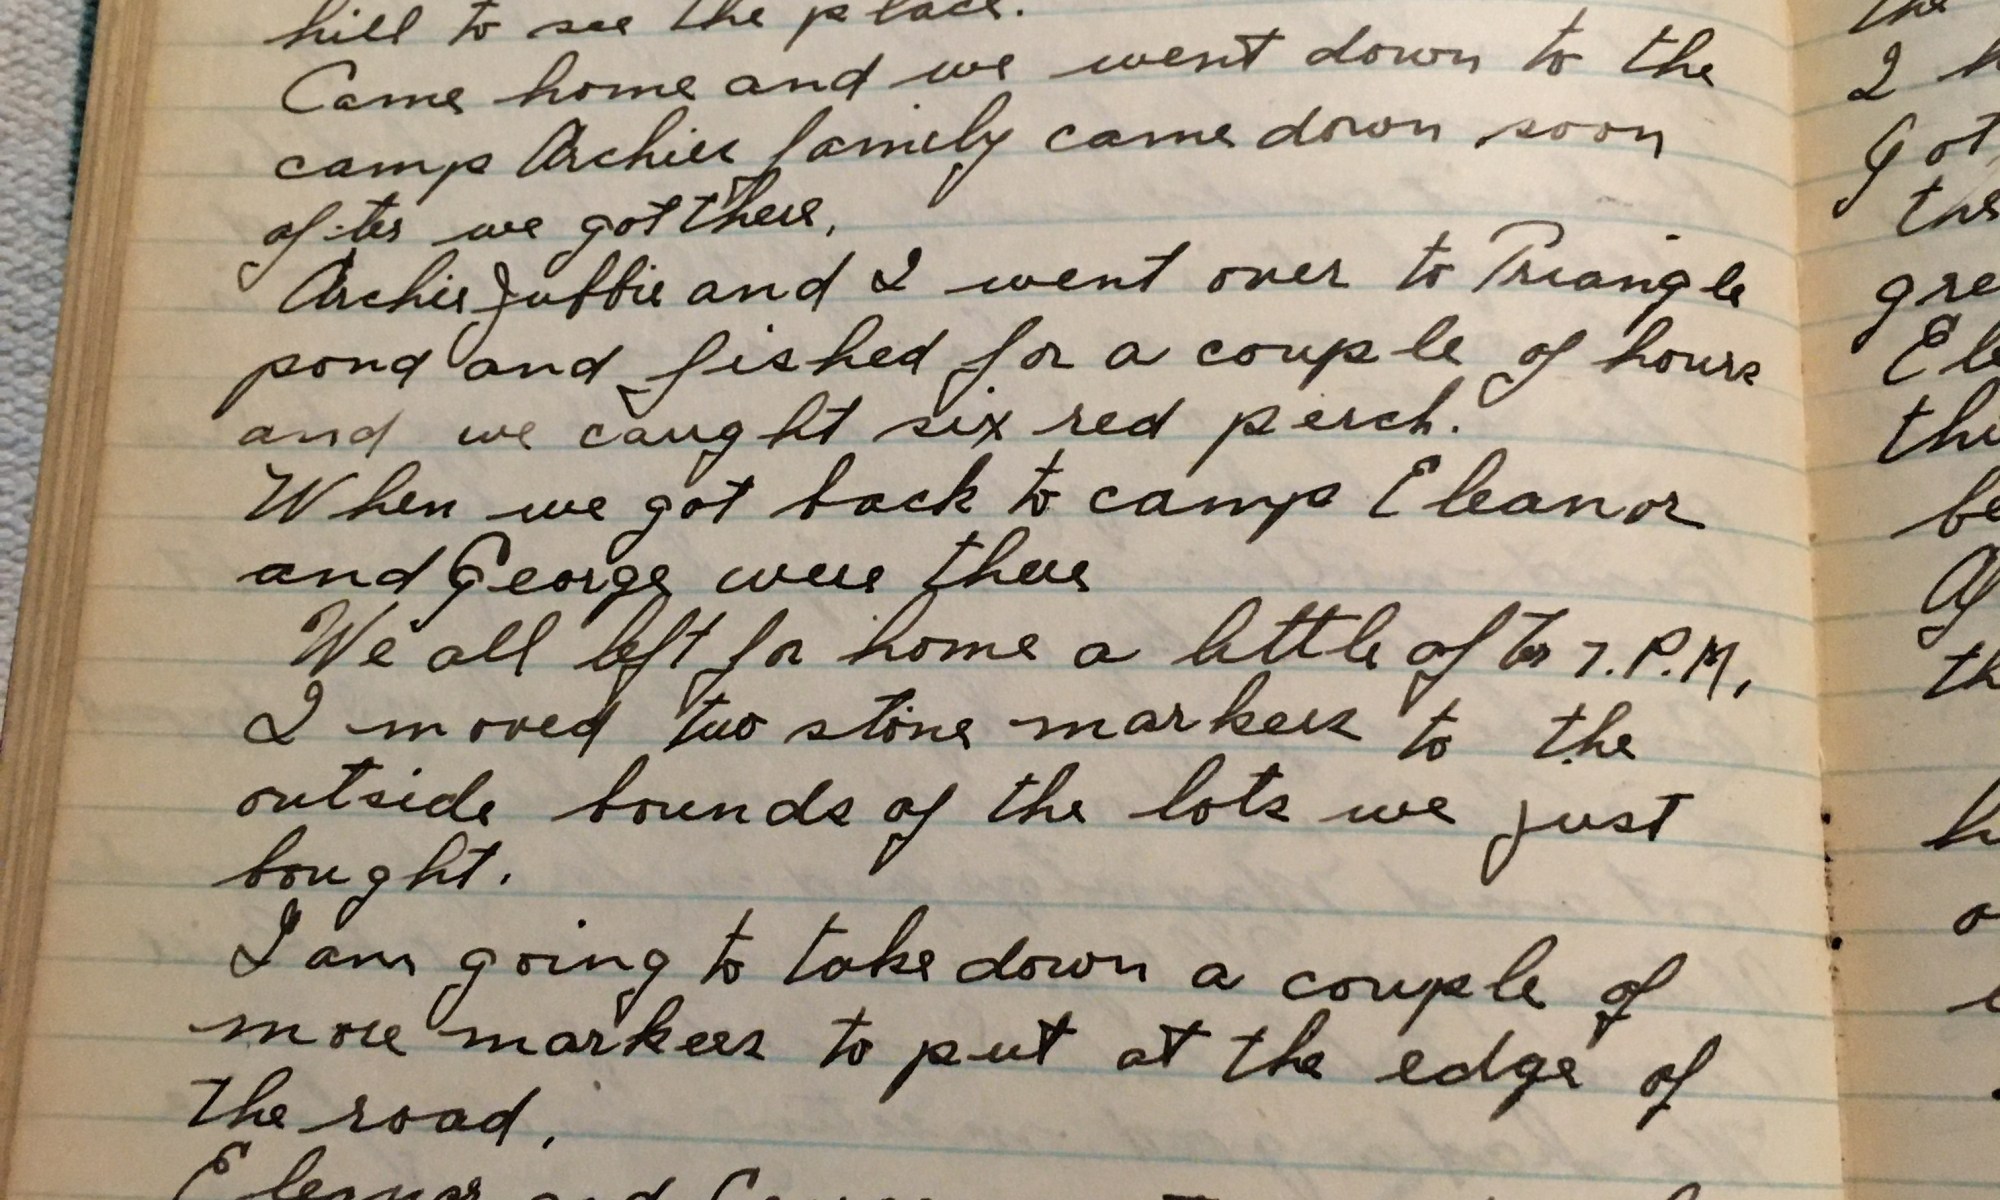 hill to see the place.
Came home and we went down to the
camp Archies family came down soon
after we got there,
Archie Jubbie and I went over to Triangle
pond and fished for a couple of hours
and we caught six red perch.
When we got back to camp Eleanor
and George were there
We all left for home a little after 7.P.M,
I moved two stone markers to the
outside bounds of the lots we just
bought.
I am going to take down a couple of
more markers to put at the edge of
the road,
Eleanor and
the
I
Got
the
gre
Ele
thi
be
th